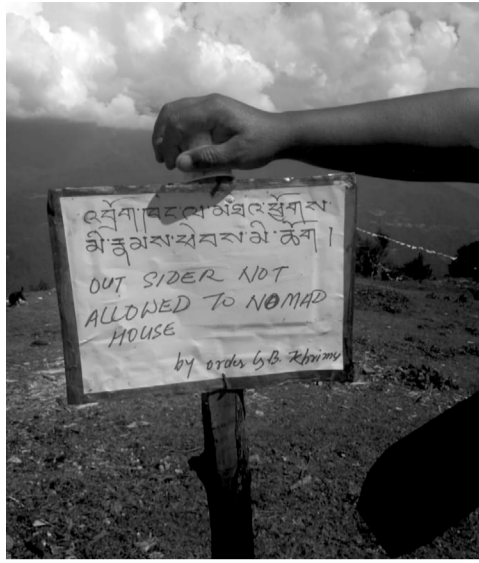 འབྲོག་ཁང་ལ་མཐའ་ཕྱོགས་
མི་རྣམས་ཕེབས་མི་ཆོག །
OUT SIDER NOT
ALLOWED TO NOMAD
HOUSE
by order G.B. Khrimu